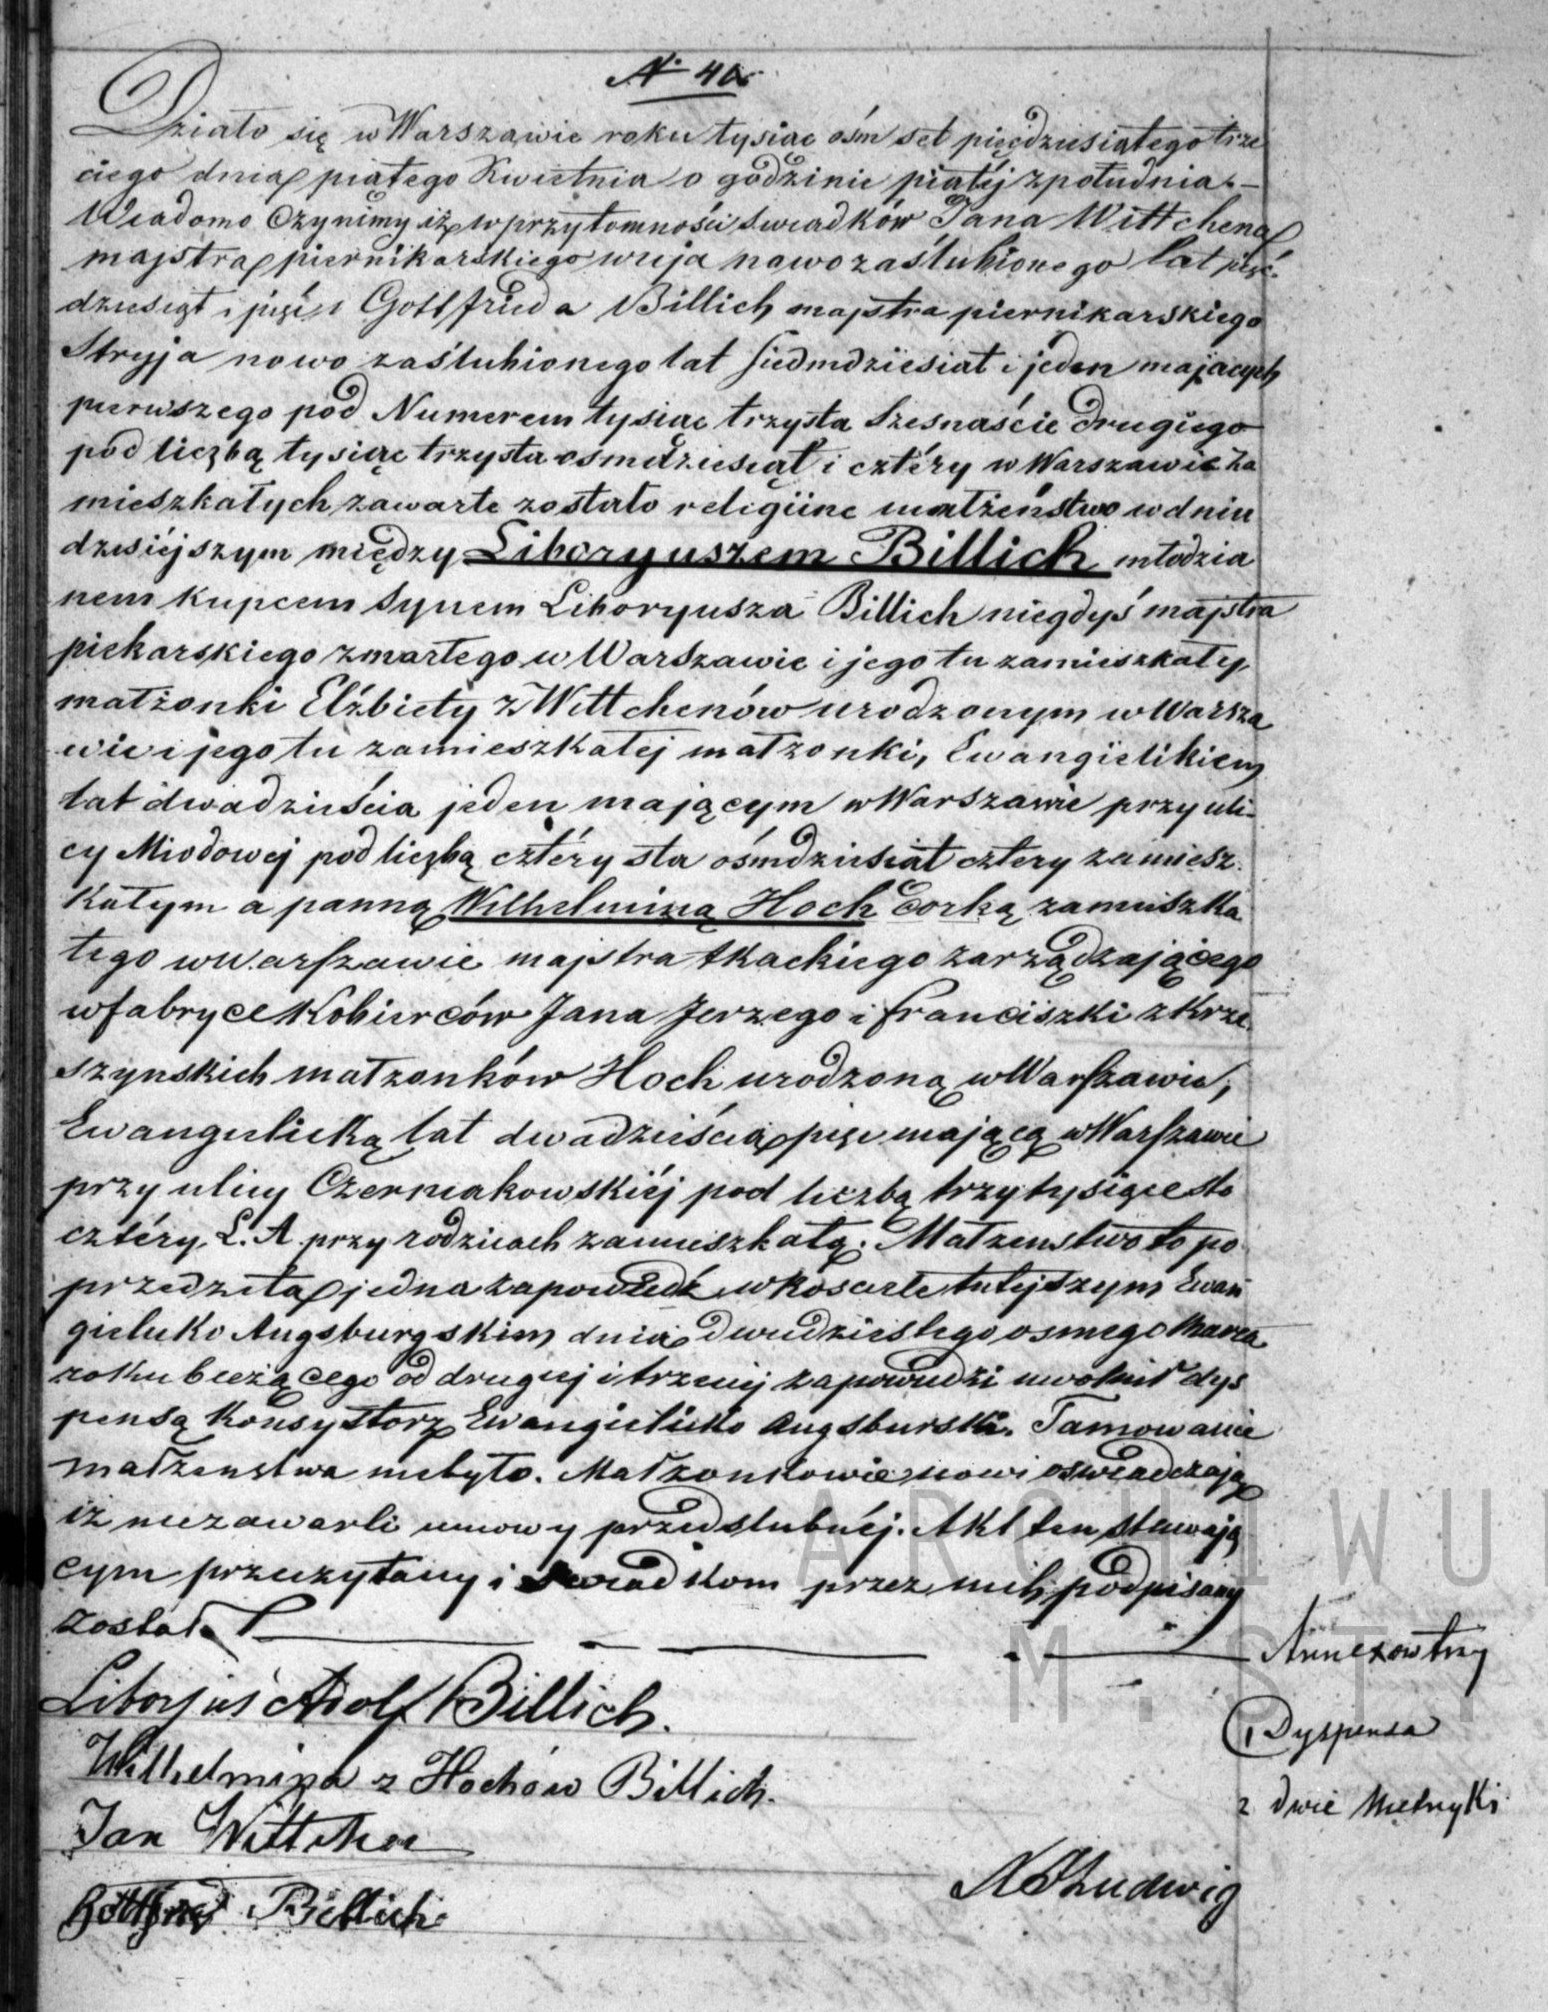 N. 40
Działo się w Warszawie roku tysiąc ośm set pięćdziesiątego trze
ciego dnia piątego Kwietnia o godzinie piątéj z południa.–
Wiadomo Czynimy iż w przytomności Swiadków Jana Wittchena
majstra piernikarskiego wuja nowo zaślubionego lat pięć-
dziesiąt i pięć i Gottfrieda Billich majstra piernikarskiego
Stryja nowo zaślubionego lat siedmdziesiat i jeden mających
pierwszego pod Numerem tysiąc trzysta Szesnaście drugiego
pod liczbą tysiąc trzysta osmdziesiąt i cztéry w Warszawie za
mieszkałych zawarte zostało religiine małżeństwo w dniu
dzisiéjszym między Liboryuszem Billich młodzia
nem kupcem Synem Liboryusza Billich niegdyś majstra
piekarskiego zmarłego w Warszawie i jego tu zamieszkałey
małżonki Elżbiety z Wittchenów urodzonym w Warsza
wie i jego tu zamieszkałej małżonki, Ewangielikiem
lat dwadzieścia jeden mającym w Warszawie przy uli-
cy Miodowej pod liczbą cztéry sta ośmdziesiat cztery zamiesz-
kałym a panną Wilhelminą Hoch Corką zamieszka
łego w Warszawie majstra tkackiego zarządzającego
w fabryce Kobierców Jana Jerzego i Franciszki z Krze-
szynskich małzonków Hoch urodzoną w Warszawie,
Ewangielicką lat dwadzieścia pięc mającą w Warszawie
przy ulicy Czerniakowskiéj pod liczbą trzy tysiące sto
cztéry L. A. przy rodzicach zamieszkałą. Małzenstwo to po
przedziła jedna zapowiedź w kosciele tutejszym Ewan
gielicko Augsburgskim dnia dwudziestego osmego Marca
roku bieżącego od drugiej i trzeciej zapowiedzi uwolnił dys
pensą Konsystorz Ewangielicko Augsburski. Tamowanie
małżenstwa niebyło. Małzonkowie nowi oświadczają
iż niezawarli umowy przedslubnéj. Akt ten stawają
cym przeczytany i Swiadkom przez nich podpisany
został.
Annexow trzy
Liborjus Adolf Billich.
1 Dyspensa
Wilhelmina z Hochów Billich.
2 dwie Metryki
Jan Wittchen
Ludwig
Gottfried Billich
ARCHIWU
M. ST.